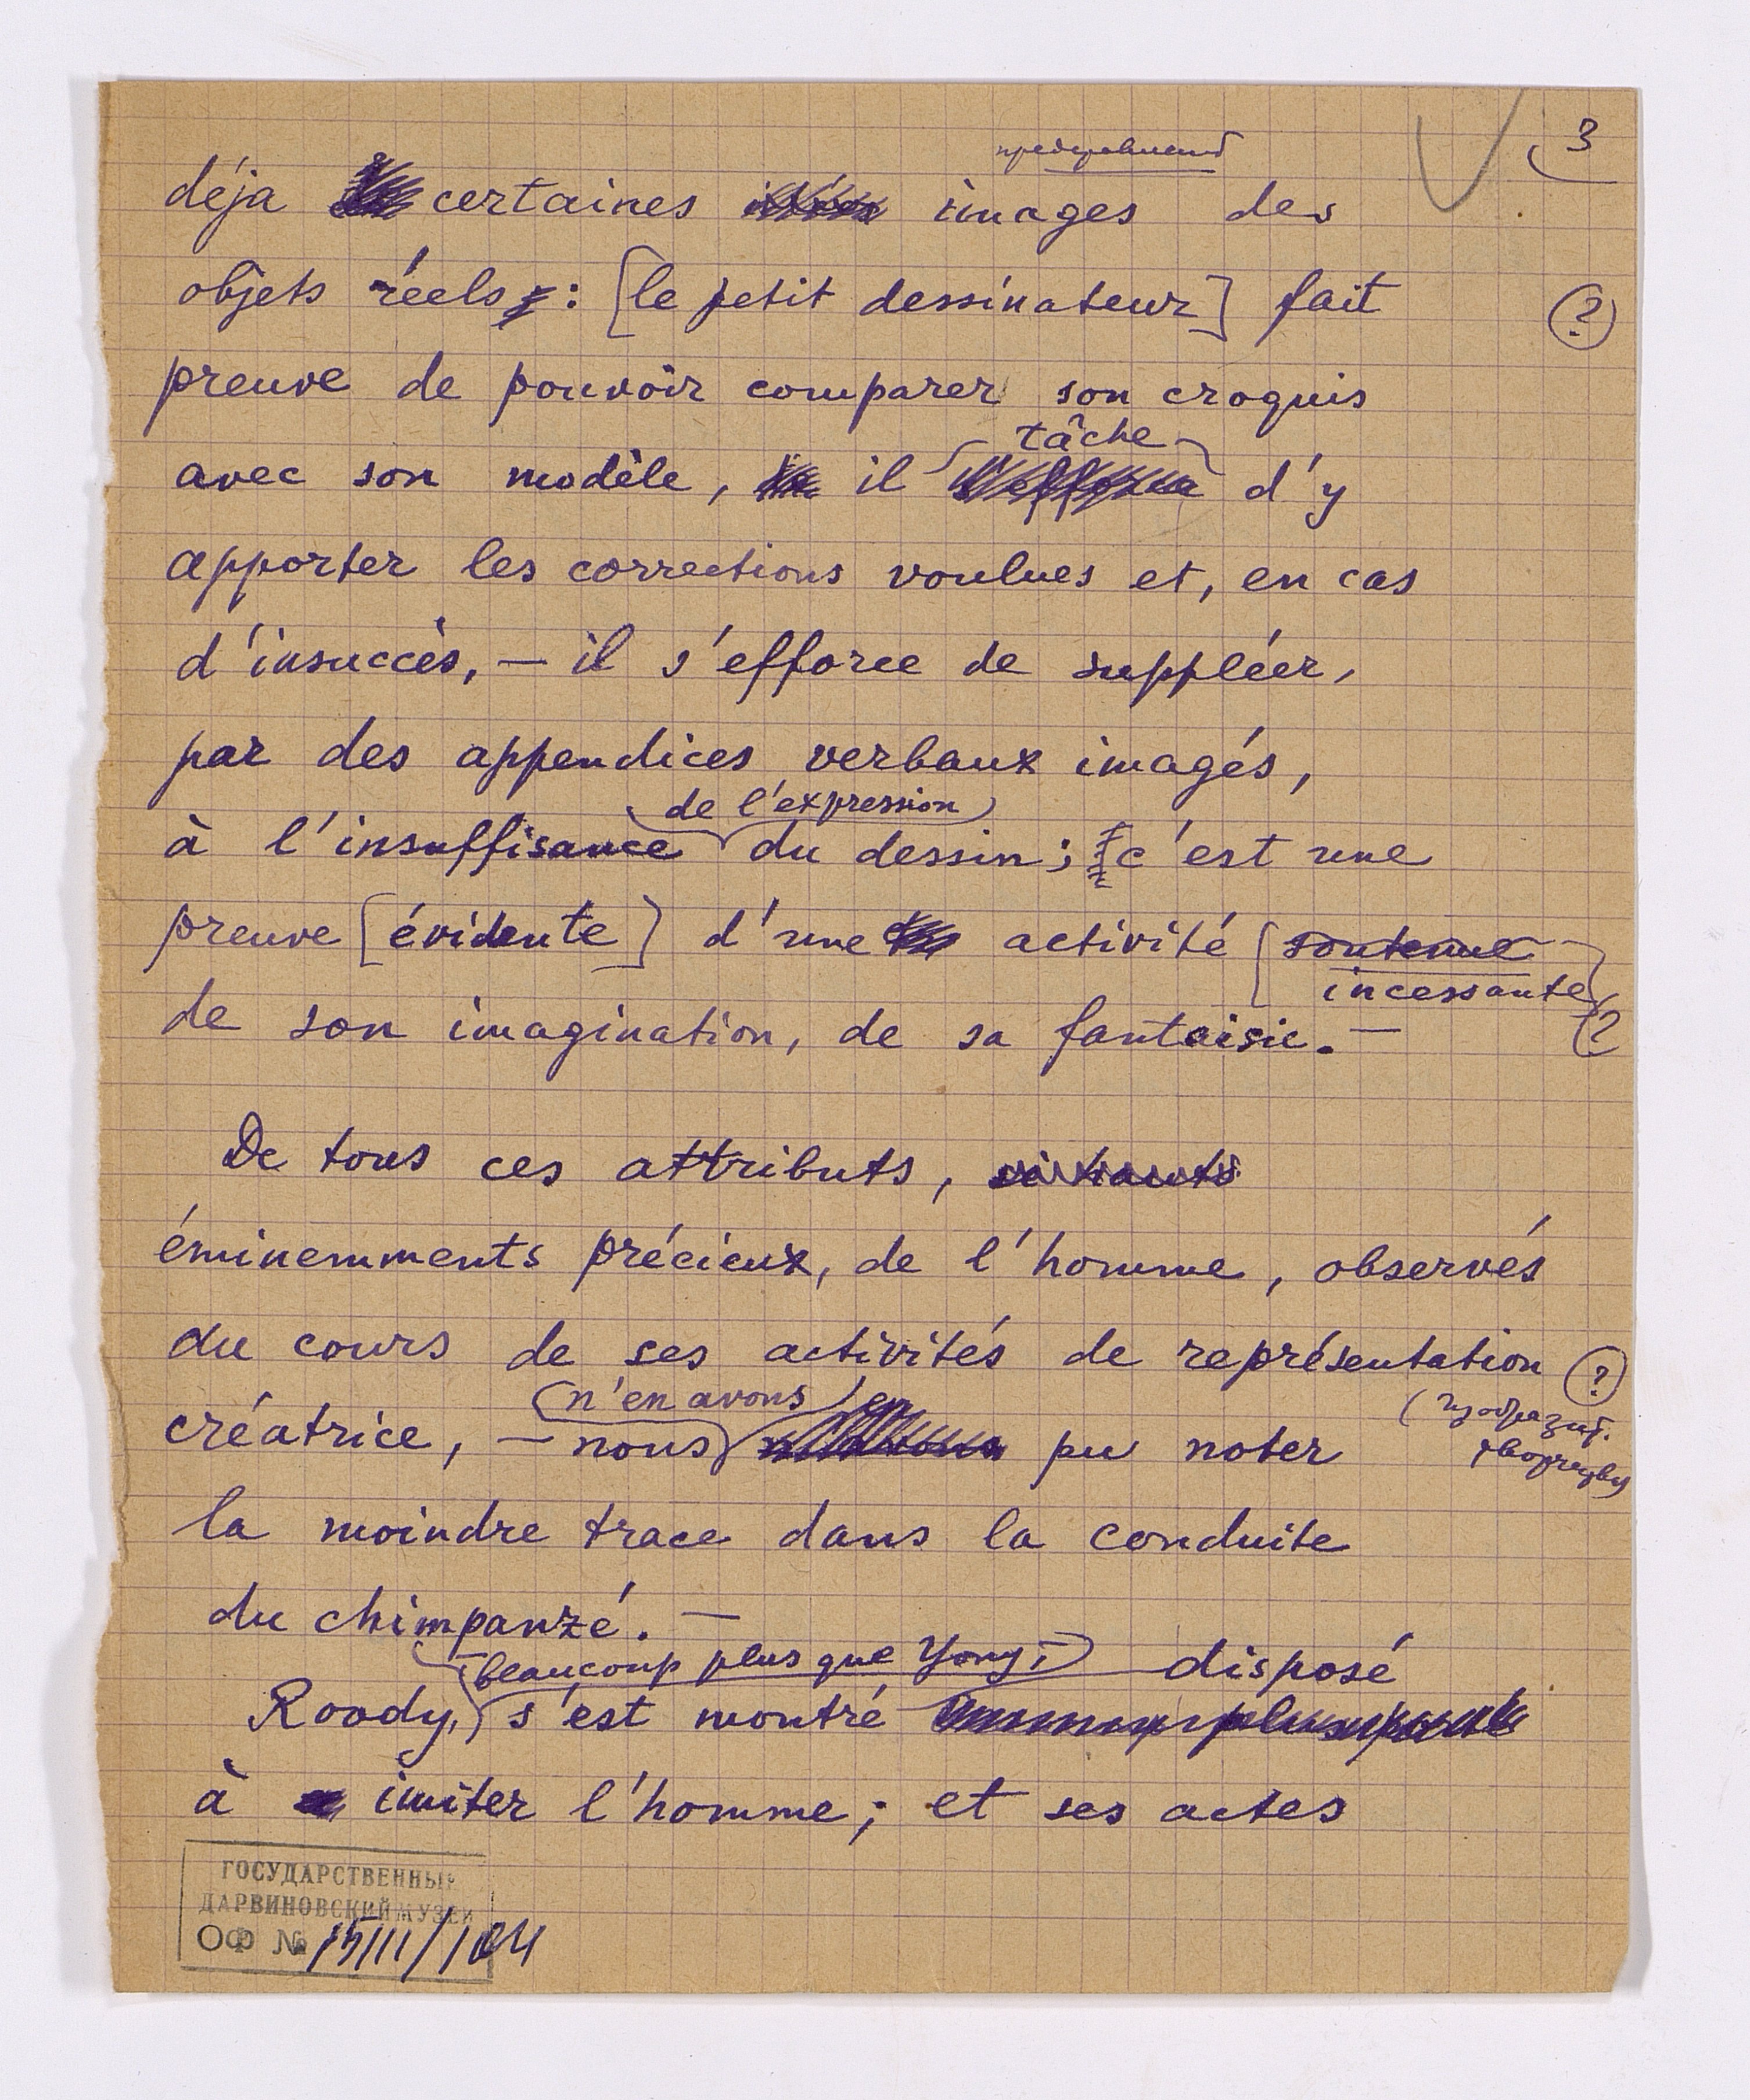 3
déja certaines images des
objets réels : [le petit dessinateur] fait
?
preuve de pouvoir comparer son croquis
tâche
avec son modèle, il d'y
apporter les corrections voulues et, en cas
d'insuccès, — il s'efforce de suppléer,
par des appendices verbaux imagés,
de l'expression
à l'insuffisance du dessin; c'est une
preuve [évidente] d'une activité [soutenue]
incessante
de son imagination, de sa fantaisie. —
?
De tous ces attributs,
éminemments précieux, de l'homme, observés
au cours de ses activités de représentation
?
(n'en avons)
créatrice, — nous pu noter
la moindre trace dans la conduite
du chimpanzé. —
(beaucoup plus que Yony,) disposé
Roody, s'est montré
à imiter l'homme; et ses actes
ГОСУДАРСТВЕННЫЙ
ДАРВИНОВСКИЙ МУЗЕЙ
ОФ №